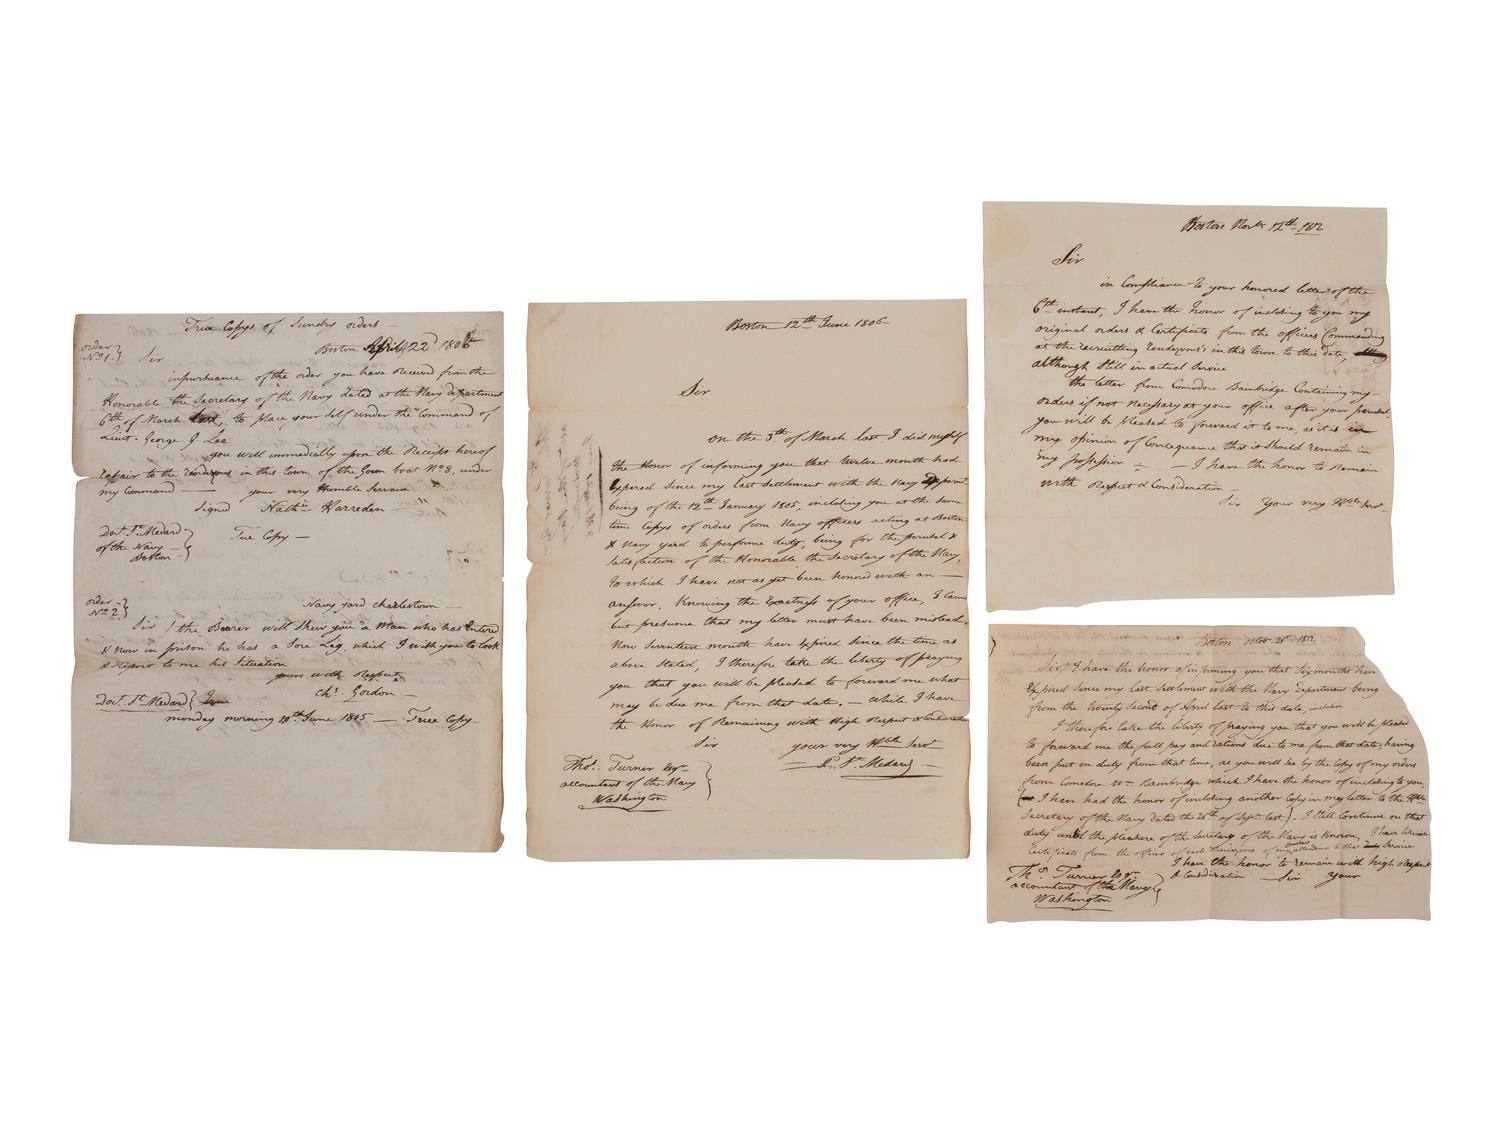 True Copys of Sundry orders —
order
No 1.
Boston April 22d 1805
Sir
inpursuance of the order you have Received from the
Honorable the Secretary of the Navy dated at the Navy department
6th of March last, to place your Self under the Command of
Lieut. George G. Lee
you will immedically upon the Receipt hereof
Repair to the Rendezvous in this town of the Goun boat No 8, under
my Command — your very Humble Servant
Signd Nathn Harreden
Doct. St. Medard
of the Navy
Boston
True Copy —
order
No 2
Navy yard Charlestown —
Sir / the Bearer will Shew you a Man who has Entered
& now in prison he has a Sore Leg, which I wish you to Look
& Report to me his Situation
yours with Respect
Chs. Gordon —
Doct. St. Medard
monday morning 10th June 1805 — True Copy
Boston 12th June 1806 —
Sir
on the 5th of March last I did myself
the Honor of informing you that twelve month had
Expired Since my last Settlement with the Navy Departmt
being of the 12th January 1805, including you at the Same
time Copys of orders from Navy officers acting at Boston
& Navy yard to performe duty, being for the perusal &
Satisfaction of the Honorable the Secretary of the Navy,
to which I have not as yet been honored with an —
answer. Knowing the Exactness of your office, I Cann
but presume that my letter must have been mislead.
Now Seventeen month have Expired Since the time as
above Stated, I therefore take the liberty of praying
you that you will be pleased to forward me what
may be due me from that date. — While I have
the Honor of Remaining with High Respect & Consideration
Sir your very Hble Servt
St. Medard
Thos. Turner Esqr
accountant of the Navy
Washington
Boston Novbr 12th 1812
Sir
in Compliance to your honored letter of the
6th instant, I have the honor of inclosing to you my
original orders & Certificate from the officers Commanding
at the recruitting Rendezvous's in this town to this date,
although Still in actual Service
the letter from Comodore Bainbridge Containing my
orders if not necessary at your office after your perusal,
you will be pleased to forward it to me, as it is in
my opinion of Concequance that it Should remain in
my possession — I have the honor to Remain
with Respect & Consideration
Sir Your very Hble Servt
Boston octobr 28th 1812
Sir / I have the honor of informing you that Six months have
Expired Since my last Settlement with the Navy Department being
from the twenty Second of April last to this date,
I therefore take the liberty of praying you that you will be pleased
to forward me the full pay and rations due to me from that date, having
been put on duty from that time, as you will be by the Copy of my orders
from Comodore Wm Bainbridge which I have the honor of inclosing to you,
I have had the honor of inclosing another Copy in my letter to the Hble
Secretary of the Navy dated the 26th of Sept. last). I Still Continue on that
duty until the pleasure of the Secretary of the Navy is Known, I have likewise
Certificats from the officer of each Rendezvous of my attendance to the Service
I have the honor to remain with high Respect
& Consideration Sir Your
Ths Turner Esqr.
accountant of the Navy
Washington